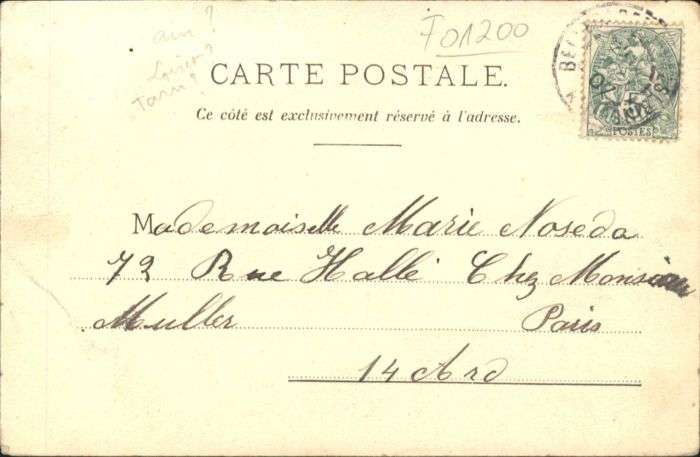 ain?
Loiret?
Tarn?
F01200
CARTE POSTALE.
Ce côté est exclusivement réservé à l'adresse.
POSTES
Mademoiselle Marie Noseda
72 Rue Hallé Chez Monsieur
Muller Paris
14 Ard